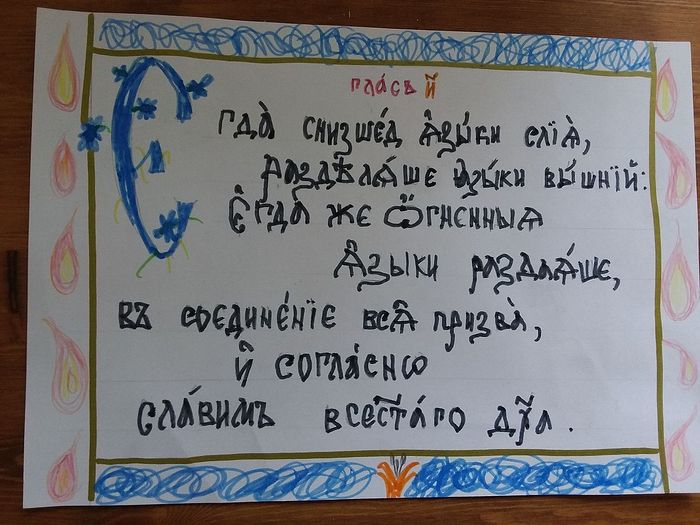 гла́съ и҃
Єгда̀ снизше́д ѧ҆зы́ки слїѧ̀,
раздѣлѧ́ше ѧзы́ки вы́шнїй:
Є҆гда̀ же Ѻ҆́гненныѧ
ѧ҆зыки раздаѧ́ше,
въ соедине́нїе всѧ̑ призва̀,
и҆ согла́снѡ
сла́вимъ всест҃а́го дх҃а.